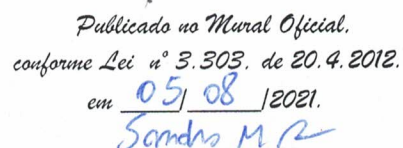 Publicado no Mural Oficial,
conforme Lei nº 3.303, de 20.4.2012.
em 05/08/2021.